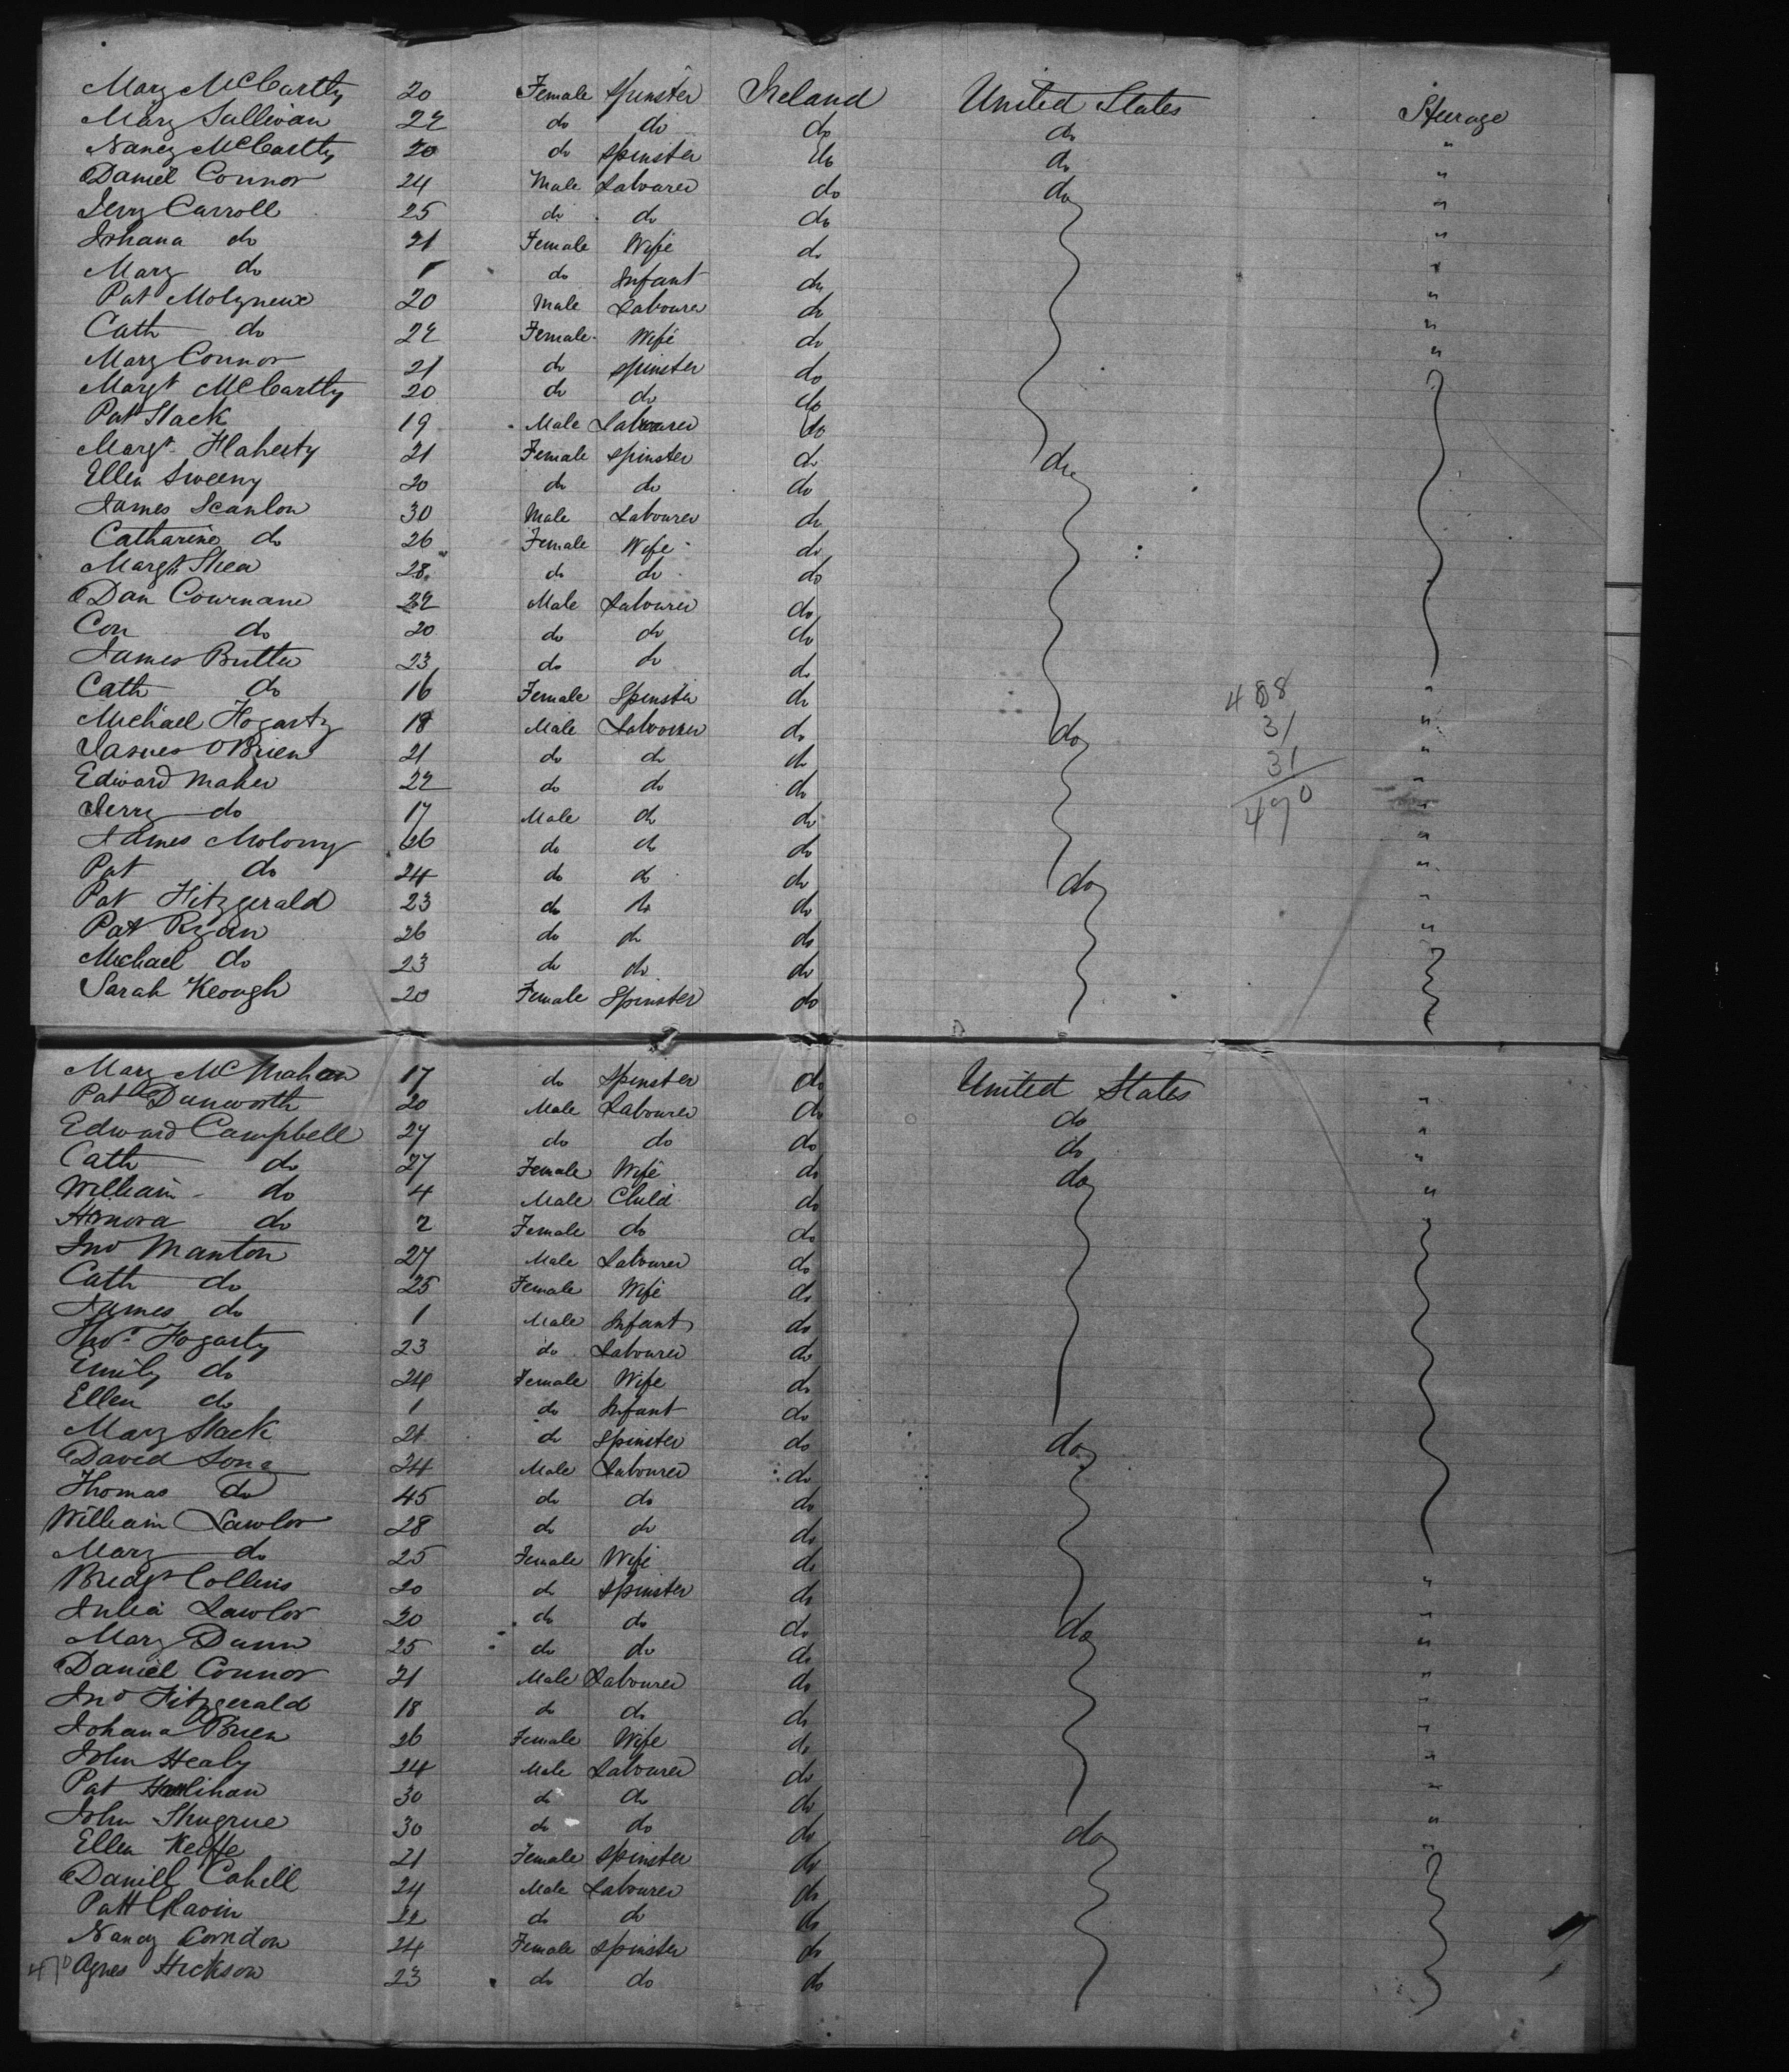 Mary McCarthy 20 Female Spinster Ireland United States Steerage
Mary Sullivan 22 do do do do "
Nancy McCarthy 20 do Spinster do do "
Daniel Connor 24 Male Labourer do do "
Jerry Carroll 25 do do do "
Johana do 21 Female Wife do "
Mary do 1 do Infant do "
Pat Molyneux 20 Male Labourer do "
Cath do 22 Female Wife do "
Mary Connor 21 do Spinster do
Margt McCarthy 20 do do do
Pat Slack 19 Male Labourer do
Margt Flaherty 21 Female Spinster do do
Ellen Sweeny 20 do do do
James Scanlon 30 Male Labourer do
Catharine do 26 Female Wife do
Margt Shea 28 do do do
Dan Cournane 22 Male Labourer do
Con do 20 do do do
James Butler 23 do do do
Cath do 16 Female Spinster do "
Michael Hogarty 18 Male Labourer do do "
James OBrien 21 do do do "
Edward Maher 22 do do do "
Jerry do 17 Male do do "
James Molony 26 do do do "
Pat do 24 do do do do "
Pat Fitzgerald 23 do do do "
Pat Ryan 26 do do do "
Michael do 23 do do do
Sarah Keough 20 Female Spinster do
31
31
490
Mary McMahon 17 do Spinster do United States "
Pat Dunworth 20 Male Labourer do do "
Edward Campbell 27 do do do do "
Cath do 27 Female Wife do do "
William do 4 Male Child do
Honora do 2 Female do do
Jno Manton 27 Male Labourer do
Cath do 25 Female Wife do
James do 1 Male Infant do
Thos Fogarty 23 do Labourer do
Emily do 24 Female Wife do
Ellen do 1 do Infant do
Mary Slack 21 do Spinster do do
David Long 24 Male Labourer do
Thomas do 45 do do do
William Lawlor 28 do do do
Mary do 25 Female Wife do "
Bridgt Collins 20 do Spinster do "
Julia Lawlor 20 do do do do "
Mary Dunn 25 do do do "
Daniel Connor 21 Male Labourer do "
Jno Fitzgerald 18 do do do "
Johana Brien 26 Female Wife do "
John Healy 24 Male Labourer do "
Pat Houlihan 30 do do do "
John Shugrue 30 do do do do "
Ellen Keiffe 21 Female Spinster do
Daniell Cahill 24 Male Labourer do
Patt 22 do do do
Nancy Corndon 24 Female Spinster do
470 Agnes Hickson 23 do do do